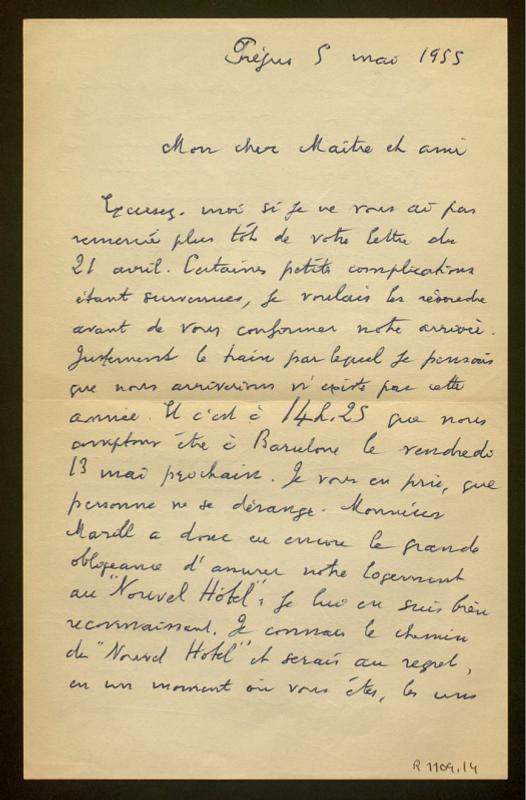 Fréjus 5 mai 1955
Mon cher Maître et ami
Excusez-moi si je ne vous ai pas
remercié plus tôt de votre lettre du
21 avril. Certaines petites complications
étant survenues, je voulais les résoudre
avant de vous confirmer notre arrivée.
Justement le train par lequel je pensais
que nous arriverions n'existe pas cette
année. Et c'est à 14h.25 que nous
comptons être à Barcelone le vendredi
13 mai prochain. Je vous en prie, que
personne ne se dérange. Monsieur
Marill a donc eu encore la grande
obligeance d'assurer notre logement
au "Nouvel Hôtel"; je lui en suis bien
reconnaissant. Je connais le chemin
du "Nouvel Hotel" et serais au regret,
en un moment où vous êtes, les uns
R 1109.14